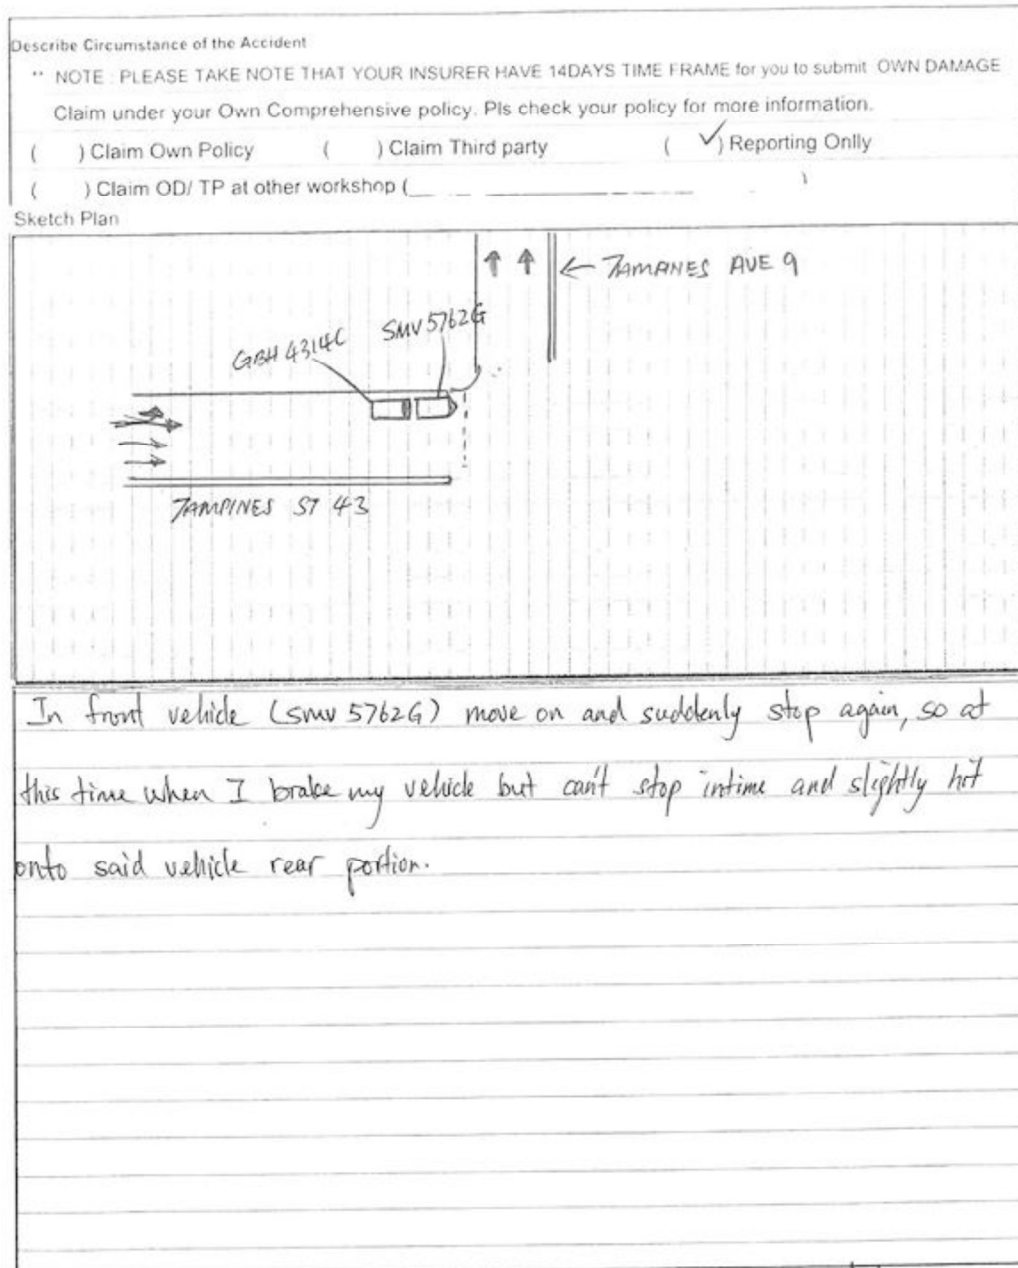 Describe Circumstance of the Accident
** NOTE : PLEASE TAKE NOTE THAT YOUR INSURER HAVE 14DAYS TIME FRAME for you to submit OWN DAMAGE
Claim under your Own Comprehensive policy. Pls check your policy for more information.
( ) Claim Own Policy ( ) Claim Third party ( ✓) Reporting Onlly
( ) Claim OD/ TP at other workshop (____________________ )
Sketch Plan
← TAMPINES AVE 9
SMV 5762G
GBH 4314C
TAMPINES ST 43
In front vehicle (SMV 5762G) move on and suddenly stop again, so at
this time when I brake my vehicle but can't stop intime and slightly hit
onto said vehicle rear portion.